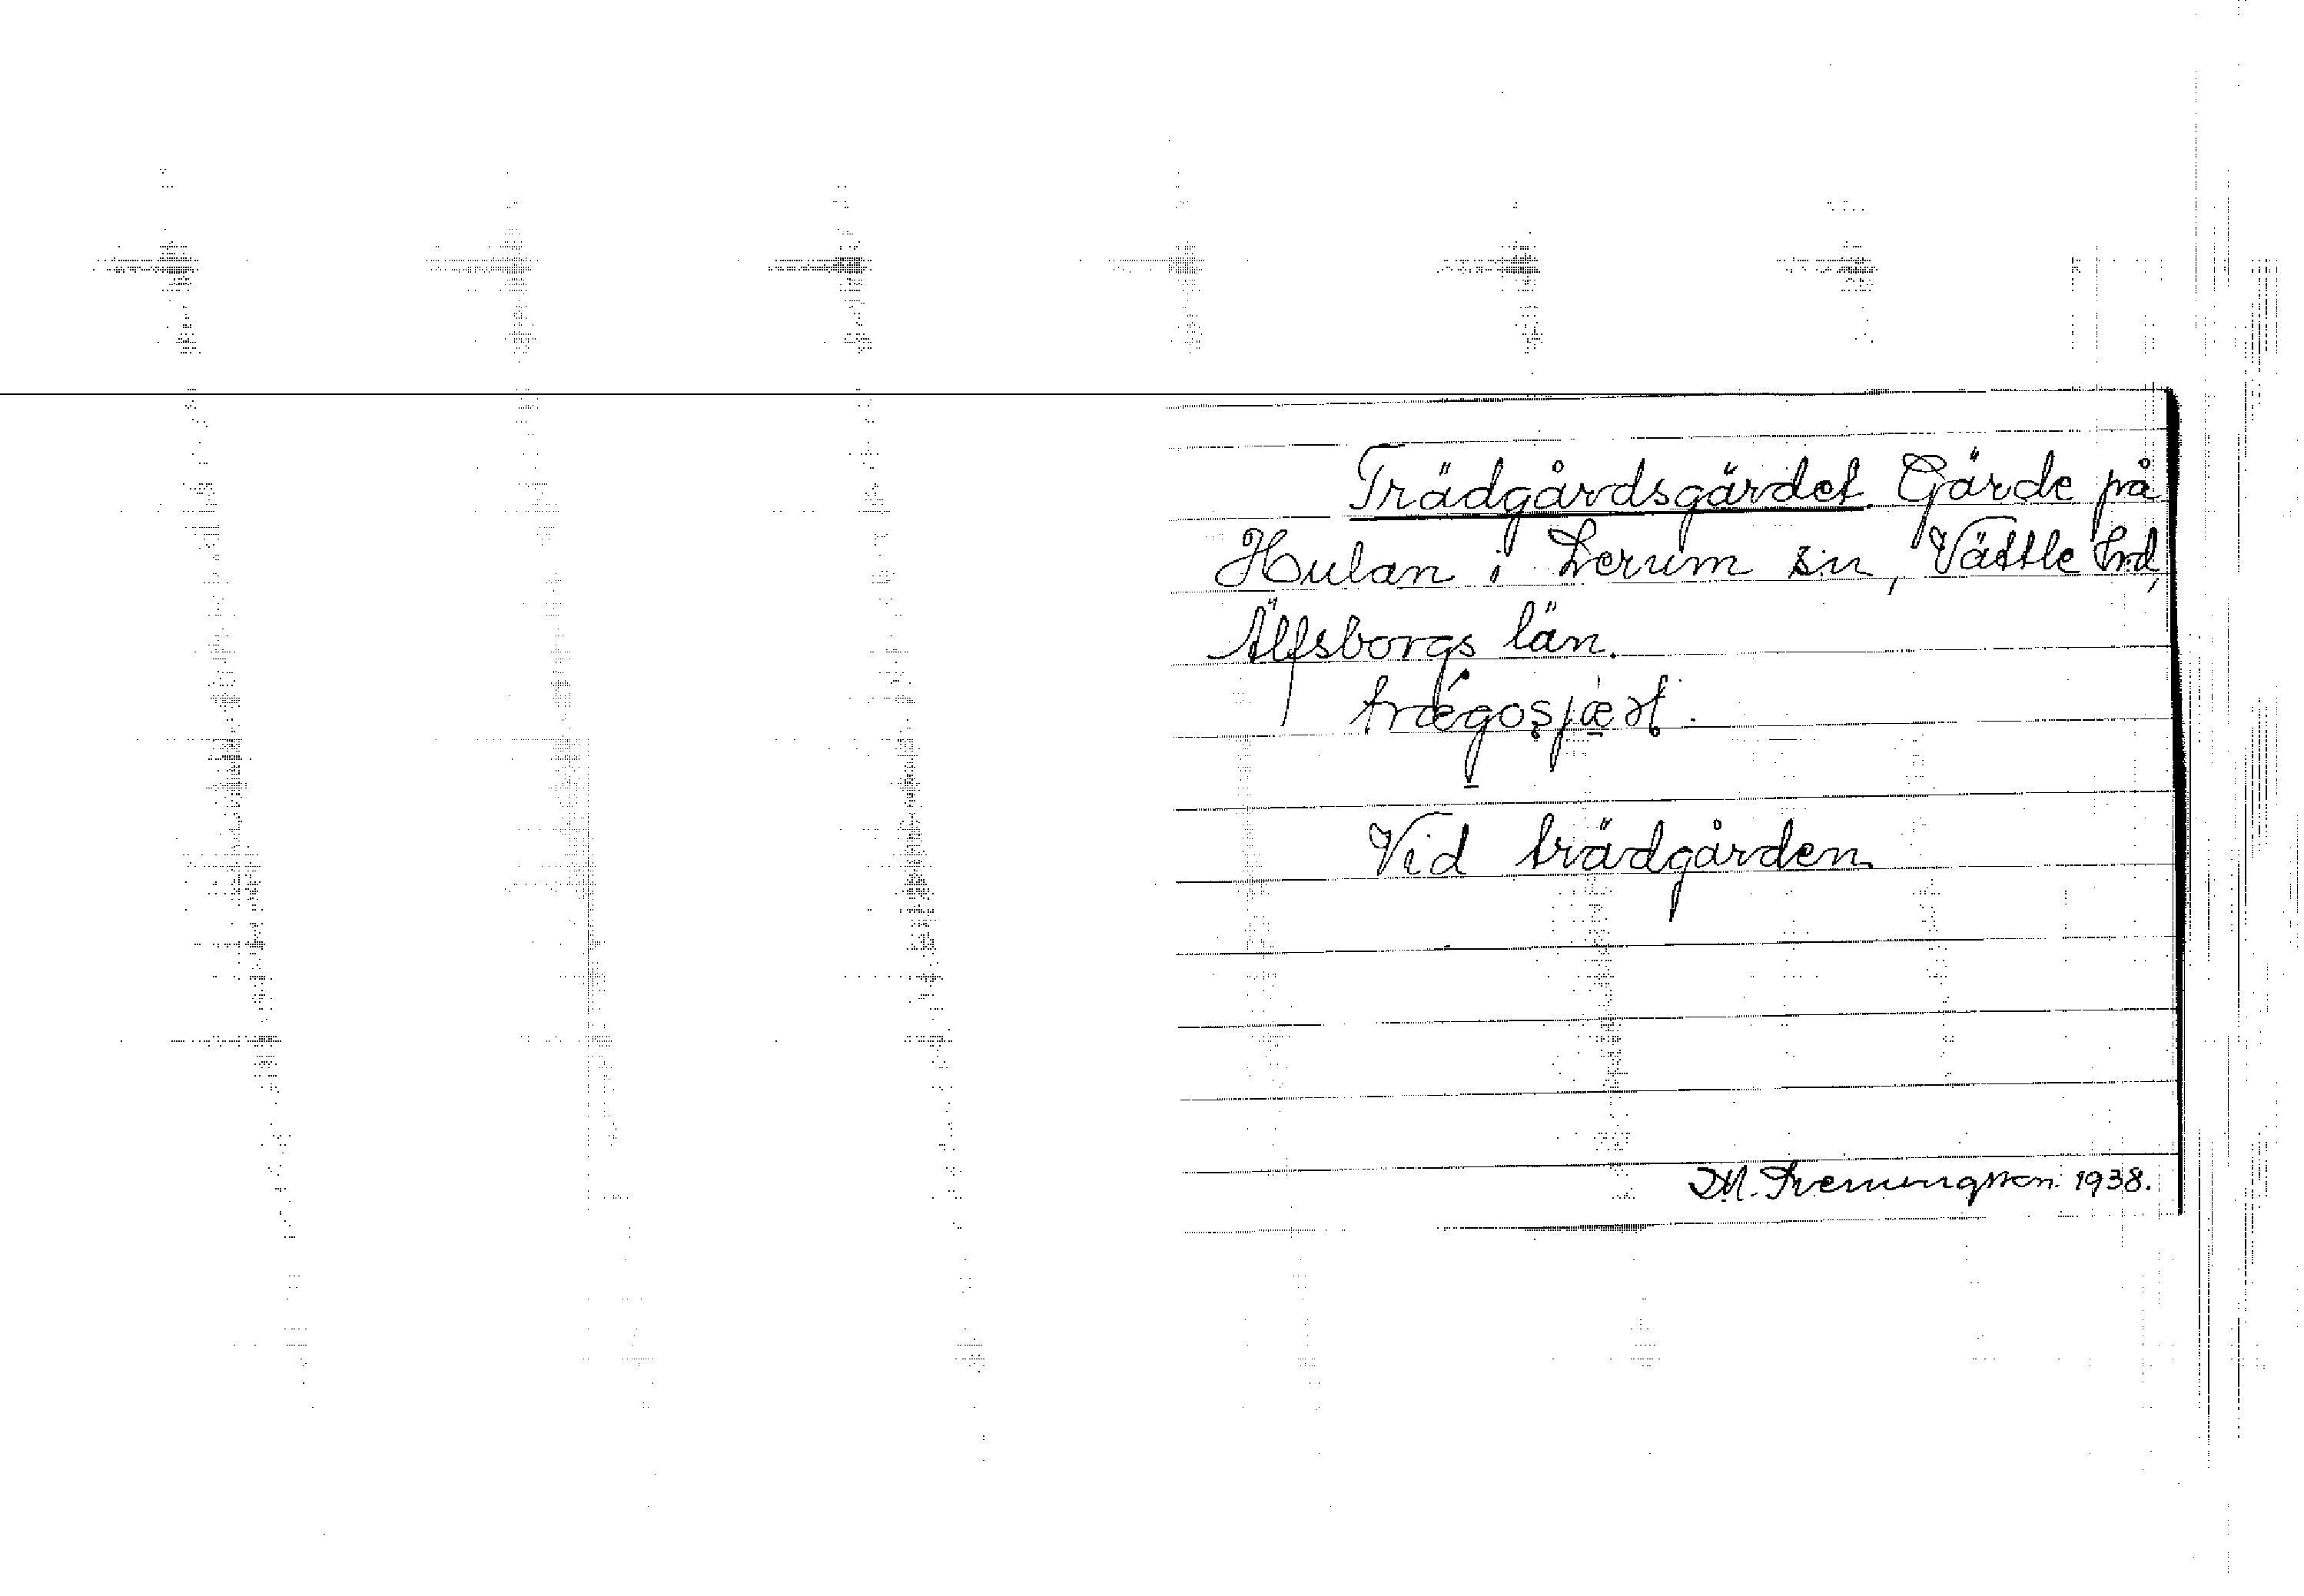 Trädgårdsgärdet Gärde på
Hulan i Lerum sn, Vättle hrd,
Älfsborgs län.
Vid trädgården
1938.